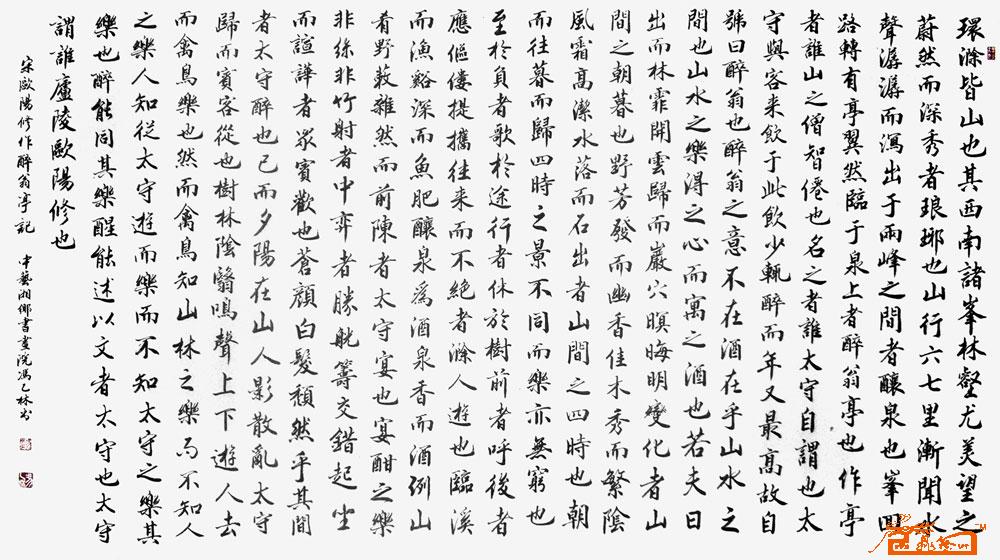 環滁皆山也其西南諸峯林壑尤美望之
蔚然而深秀者琅琊也山行六七里漸聞水
聲潺潺而瀉出于兩峰之間者釀泉也峯回
路轉有亭翼然臨于泉上者醉翁亭也作亭
者誰山之僧智僊也名之者誰太守自謂也太
守與客来飲于此飲少輒醉而年又最高故自
號曰醉翁也醉翁之意不在酒在乎山水之
間也山水之樂得之心而寓之酒也若夫日
出而林霏開雲歸而巖穴暝晦明變化者山
間之朝暮也野芳發而幽香佳木秀而繁陰
風霜高潔水落而石出者山間之四時也朝
而往暮而歸四時之景不同而樂亦無窮也
至於負者歌於途行者休於樹前者呼後者
應傴僂提攜往来而不絕者滁人遊也臨溪
而漁谿深而魚肥釀泉為酒泉香而酒例山
肴野蔌雜然而前陳者太守宴也宴酣之樂
非絲非竹射者中弈者勝觥籌交錯起坐
而諠譁者眾賓歡也蒼顏白髮頹然乎其間
者太守醉也已而夕陽在山人影散亂太守
歸而賓客從也樹林陰翳鳴聲上下遊人去
而禽鳥樂也然而禽鳥知山林之樂而不知人
之樂人知從太守遊而樂而不知太守之樂其
樂也醉能同其樂醒能述以文者太守也太守
謂誰廬陵歐陽修也
宋歐陽修作醉翁亭記 中藝湘鄉書畫院馮乙林書